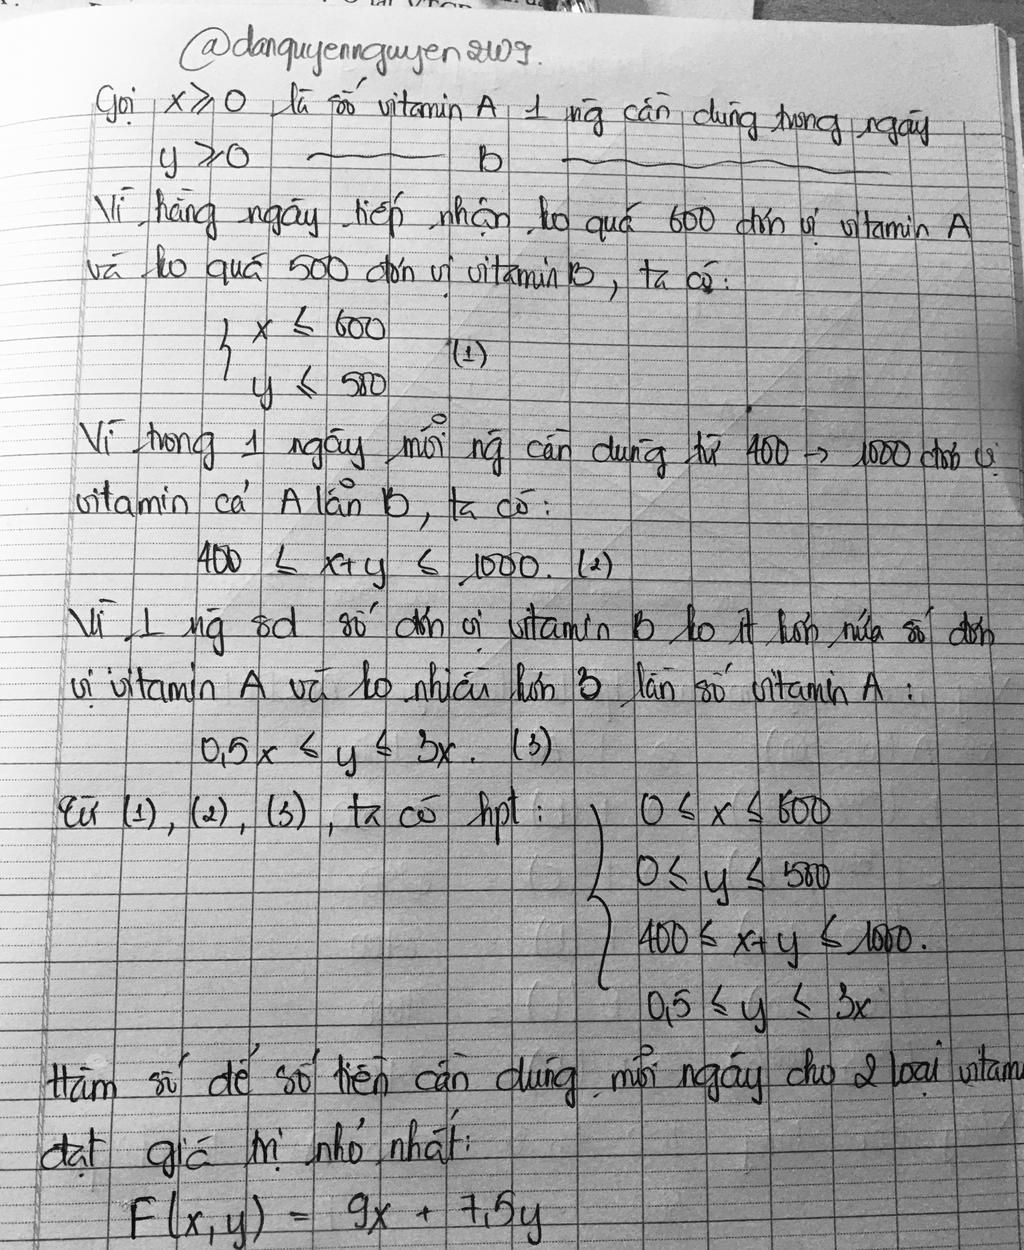 @danquyennguyen2409.
Gọi x ≥ 0 là số vitamin A 1 ng cần dùng trong ngày
y ≥ 0 ——— B ———
Vì hàng ngày tiếp nhận ko quá 600 đơn vị vitamin A
và ko quá 500 đơn vị vitamin B, ta có:
{ x ≤ 600
(1)
y ≤ 500
Vì trong 1 ngày mỗi ng cần dùng từ 400 → 1000 đơn vị
vitamin cả A lẫn B, ta có:
400 ≤ x+y ≤ 1000. (2)
Vì 1 ng sd số đơn vị vitamin B ko ít hơn nửa số đơn
vị vitamin A và ko nhiều hơn 3 lần số vitamin A:
0,5x ≤ y ≤ 3x. (3)
Từ (1), (2), (3), ta có hpt: { 0 ≤ x ≤ 600
0 ≤ y ≤ 500
400 ≤ x+y ≤ 1000.
0,5 ≤ y ≤ 3x
Hàm số để số tiền cần dùng mỗi ngày cho 2 loại vitam
đạt giá trị nhỏ nhất:
F(x,y) = 9x + 7,5y